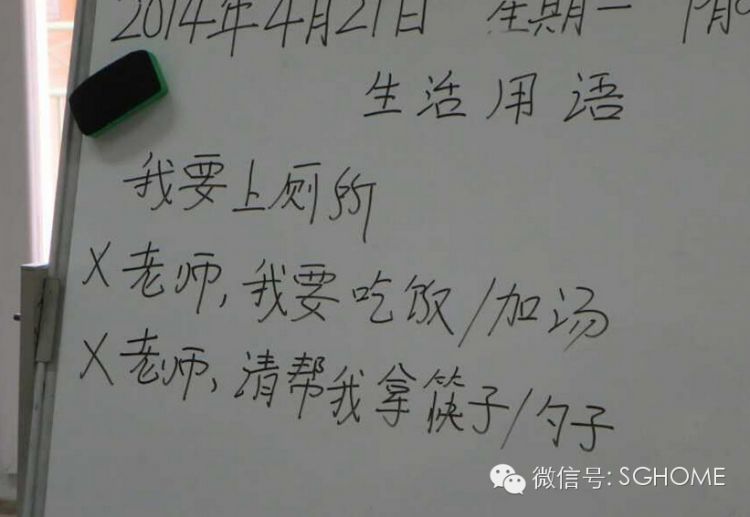 2014年4月21日 星期一 阴
生活用语
我要上厕所
X老师,我要吃饭/加汤
X老师,请帮我拿筷子/勺子
微信号: SGHOME